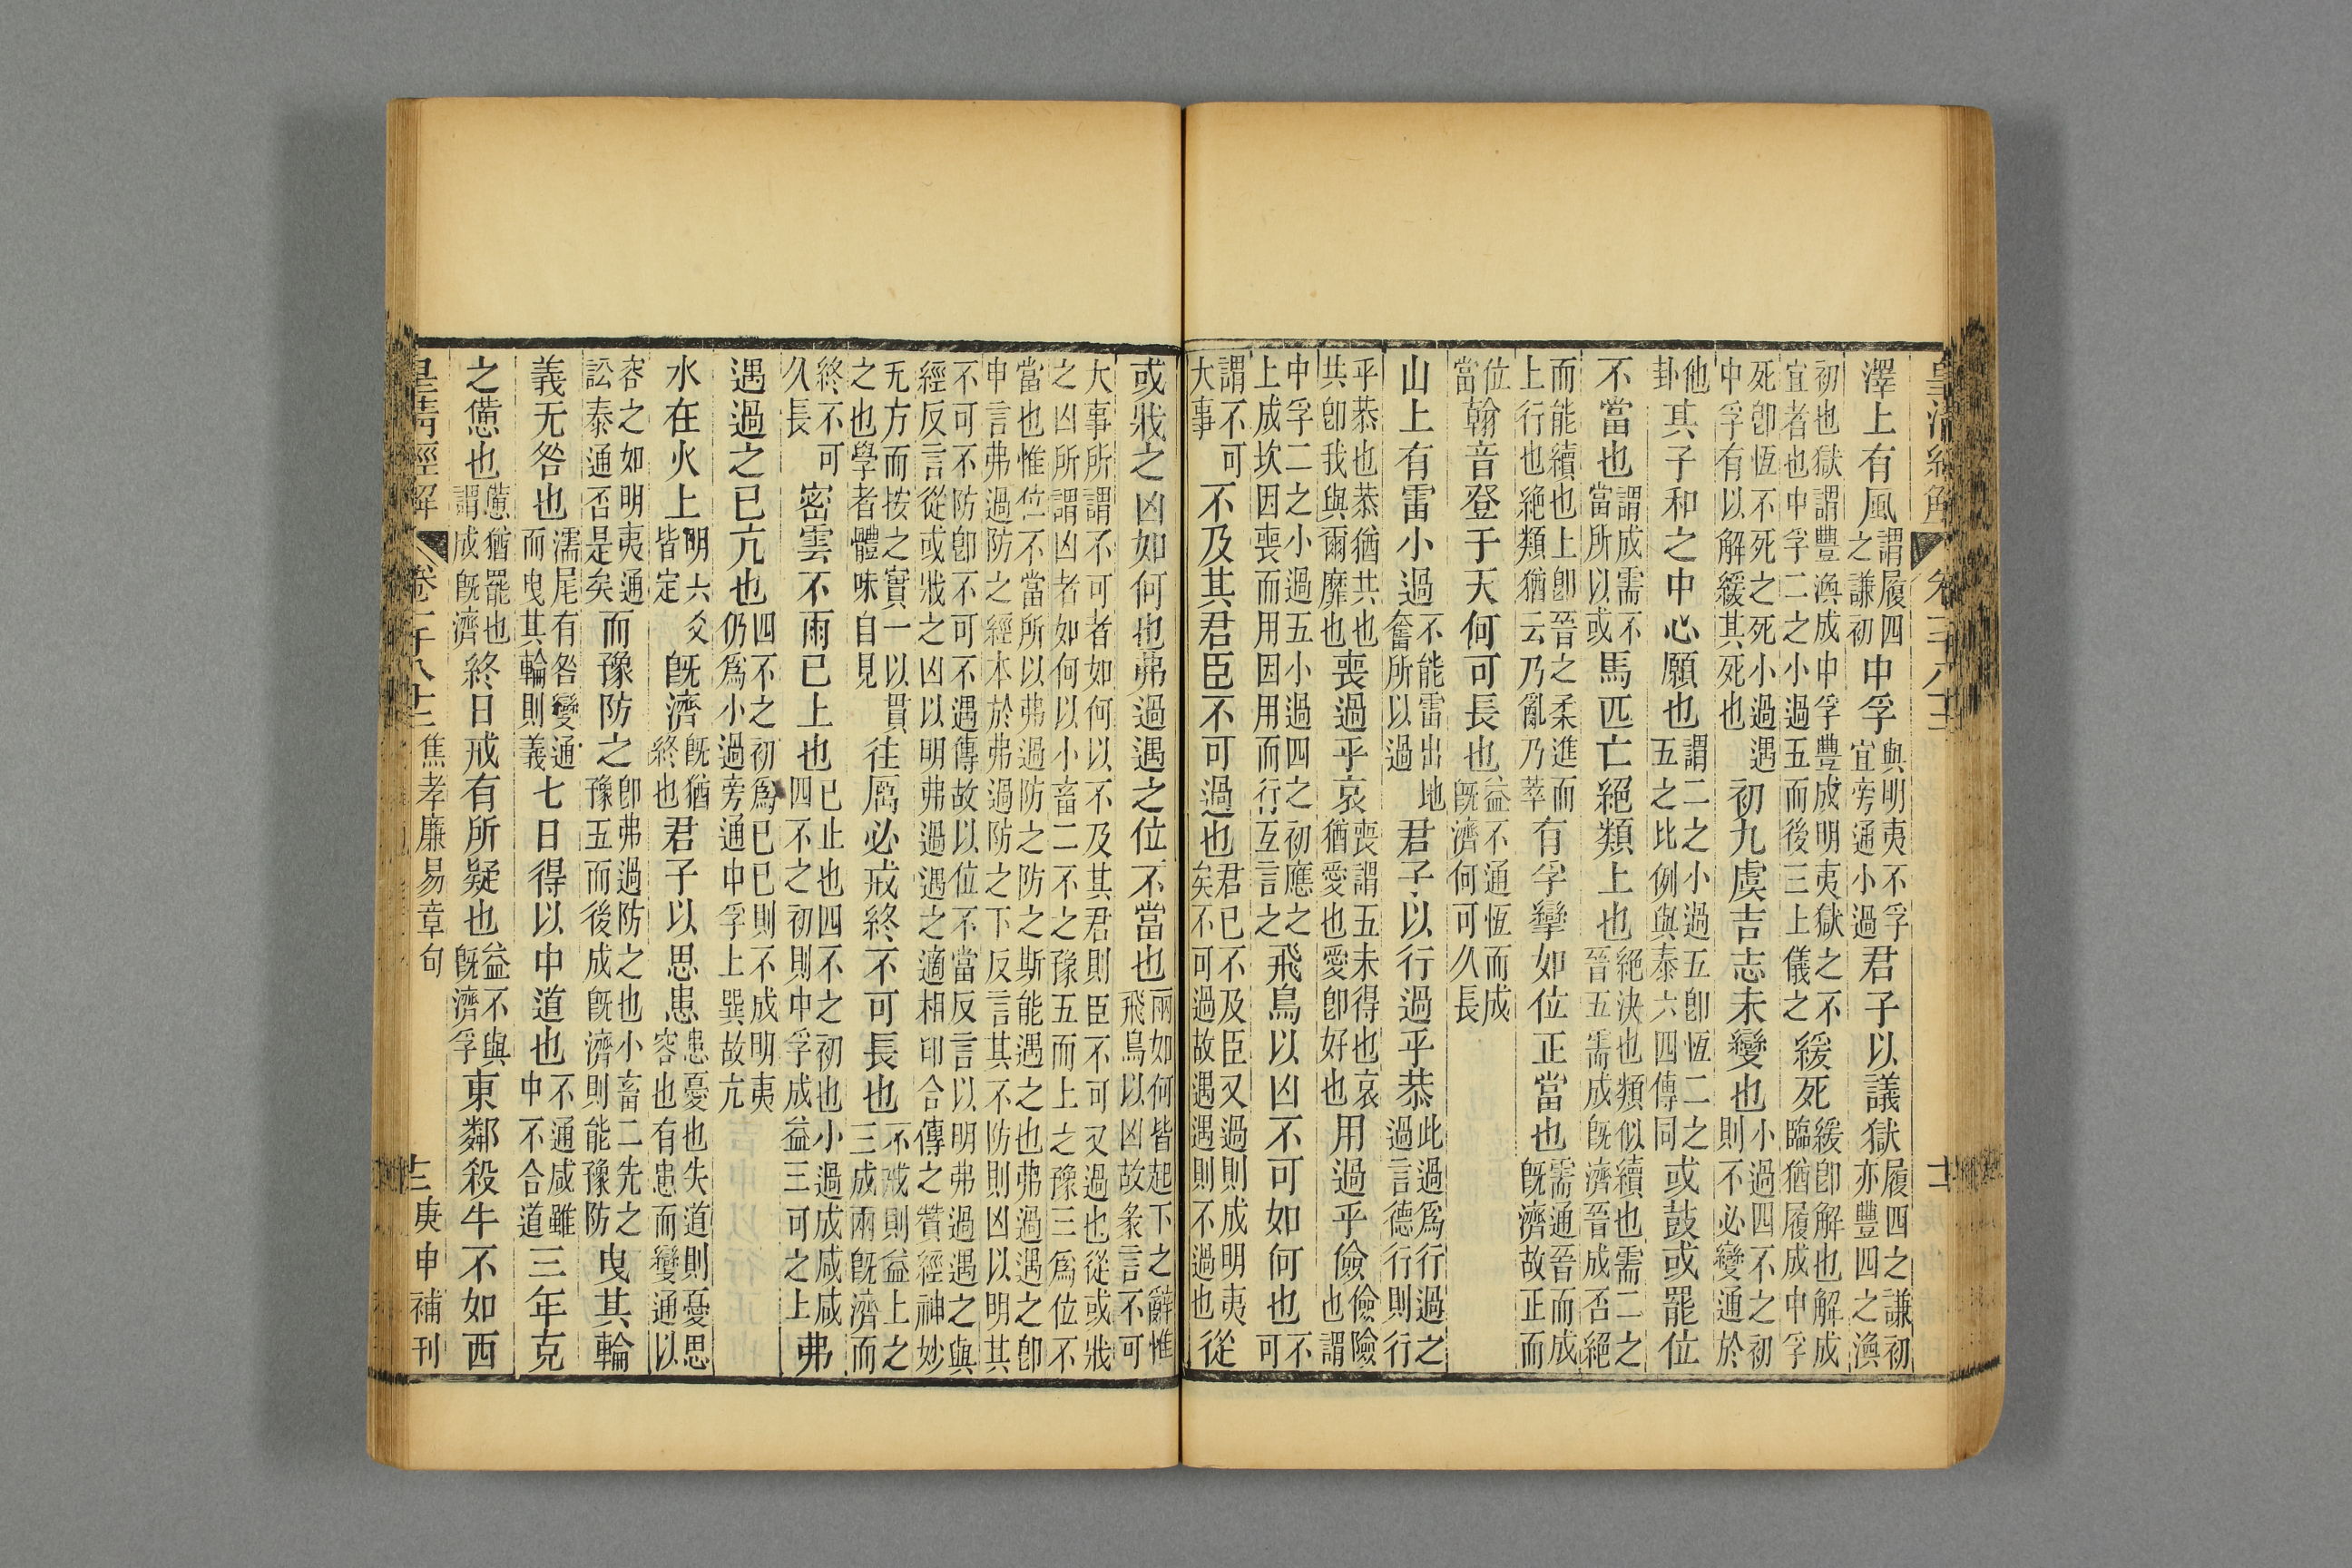 皇清經解
澤上有風謂履四之謙初中孚與明夷不孚宜旁通小過君子以議獄履四之謙初亦豐四之渙
初也獄謂豐渙成中孚豐成明夷獄之不宜者也中孚二之小過五而後三上儀之緩死緩卽解也解成臨猶履成中孚
死卽恆不死之死小過遇中孚有以解緩其死也初九虞吉志未變也小過四不之初則不必變通於
他卦其子和之中心願也謂二之小過五卽恆二之五之比例與泰六四傳同或鼓或罷位
不當也謂成需不當所以或馬匹亡絕類上也絕決也類似續也需二之晉五需成旣濟晉成否絕
而能續也上卽晉之柔進而上行也絕類猶云乃亂乃萃有孚攣如位正當也需通晉而成旣濟故正而
位當翰音登于天何可長也益不通恆而成旣濟何可久長
山上有雷小過不能雷出地奮所以過君子以行過乎恭此過爲行過之過言德行則行
乎恭也恭猶共也共卽我與爾靡也喪過乎哀喪謂五未得也哀猶愛也愛卽好也用過乎儉儉險也謂
中孚二之小過五小過四之初應之上成坎因喪而用因用而行互言之飛鳥以凶不可如何也不可
謂不可大事不及其君臣不可過也君已不及臣又過則成明夷矣不可過故遇遇則不過也從
或戕之凶如何也弗過遇之位不當也兩如何皆起下之辭惟飛鳥以凶故彖言不可
大事所謂不可者如何以不及其君則臣不可又過也從或戕之凶所謂凶者如何以小畜二不之豫五而上之豫三爲位不
當也惟位不當所以弗過防之防之斯能遇之也弗過遇之卽申言弗過防之經本於弗過防之下反言其不防則凶以明其
不可不防卽不可不遇傳故以位不當反言以明弗過遇之與經反言從或戕之凶以明弗過遇之適相印合傳之贊經神妙
无方而按之實一以貫之也學者體味自見往厲必戒終不可長也不戒則益上之三成兩旣濟而
終不可久長密雲不雨已上也已止也四不之初也小過成咸咸四不之初則中孚成益三可之上弗
遇過之已亢也四不之初爲已已則不成明夷仍爲小過旁通中孚上巽故亢
水在火上明六爻皆定旣濟旣猶終也君子以思患患憂也失道則憂思容也有患而變通以
容之如明夷通訟泰通否是矣而豫防之卽弗過防之也小畜二先之豫五而後成旣濟則能豫防曳其輪
義无咎也濡尾有咎變通而曳其輪則義七日得以中道也不通咸雖中不合道三年克
之憊也憊猶罷也謂成旣濟終日戒有所疑也益不與旣濟孚東鄰殺牛不如西
皇清經解 卷一千八十二 焦孝廉易章句 庚申補刊